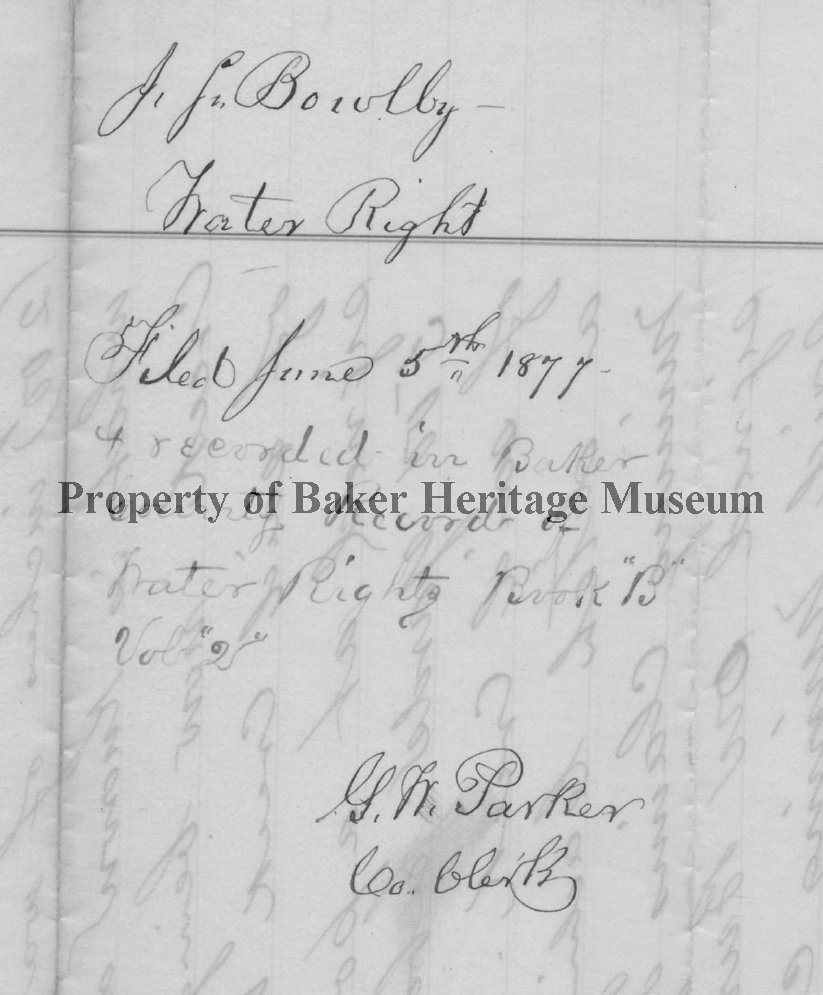 J. Bowlby -
Water Right
Filed June 5th 1877-
& recorded in Baker
Property of Baker Heritage Museum
County Records of
Water Rights Book "B"
Vol "2"
G. W. Parker
Co. Clerk